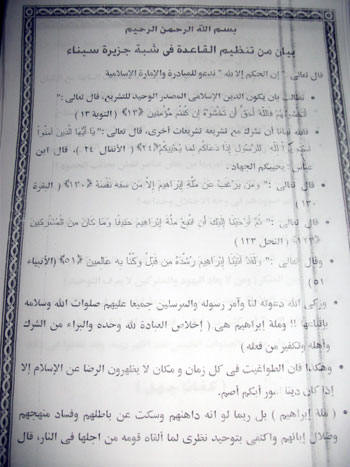 بسم الله الرحمن الرحيم
بيان من تنظيم القاعدة فى شبة جزيرة سيناء
قال تعالى " إن الحكم إلا لله " ندعو للمبادرة والإمارة الإسلامية
نطالب بأن يكون الدين الإسلامى المصدر الوحيد للتشريع، قال تعالى :"
أَتَخْشَوْنَهُمْ فَاللَّهُ أَحَقُّ أَنْ تَخْشَوْهُ إِنْ كُنْتُمْ مُؤْمِنِينَ ﴿١٣﴾ ( التوبة ١٣ )
أن نشرك مع تشريعه تشريعات أخرى، قال تعالى :" يَا أَيُّهَا الَّذِينَ آمَنُوا
لِلَّهِ وَلِلرَّسُولِ إِذَا دَعَاكُمْ لِمَا يُحْيِيكُمْ ﴿٢٤﴾ ( الأنفال ٢٤ )، قال ابن
عباس:- يحييكم الجهاد .
قال تعالى :" وَمَنْ يَرْغَبُ عَنْ مِلَّةِ إِبْرَاهِيمَ إِلَّا مَنْ سَفِهَ نَفْسَهُ ﴿١٣٠﴾ ( البقرة
١٣٠ )
قال تعالى :" ثُمَّ أَوْحَيْنَا إِلَيْكَ أَنِ اتَّبِعْ مِلَّةَ إِبْرَاهِيمَ حَنِيفًا وَمَا كَانَ مِنَ الْمُشْرِكِينَ
﴿١٢٣﴾ ( النحل ١٢٣ )
وقال تعالى :" وَلَقَدْ آتَيْنَا إِبْرَاهِيمَ رُشْدَهُ مِنْ قَبْلُ وَكُنَّا بِهِ عَالِمِينَ ﴿٥١﴾ (الأنبياء
٥١)
وزكى الله دعوته لنا وأمر رسوله والمرسلين جميعا عليهم صلوات الله وسلامه
بإتباعها !! وملة إبراهيم هى ( إخلاص العبادة لله وحده والبراء من الشرك
وأهله وتكفير من فعله )
وهكذا فان الطواغيت فى كل زمان و مكان لا يظهرون الرضا عن الإسلام إلا
إذا كان دينا أعور أبكم أصم.
( ملة إبراهيم ) بل ربما لو انه داهنهم وسكت عن باطلهم وفساد منهجهم
وضلال إبائهم واكتفى بتوحيد نظرى لما ألقاه قومه من اجلها فى النار، قال